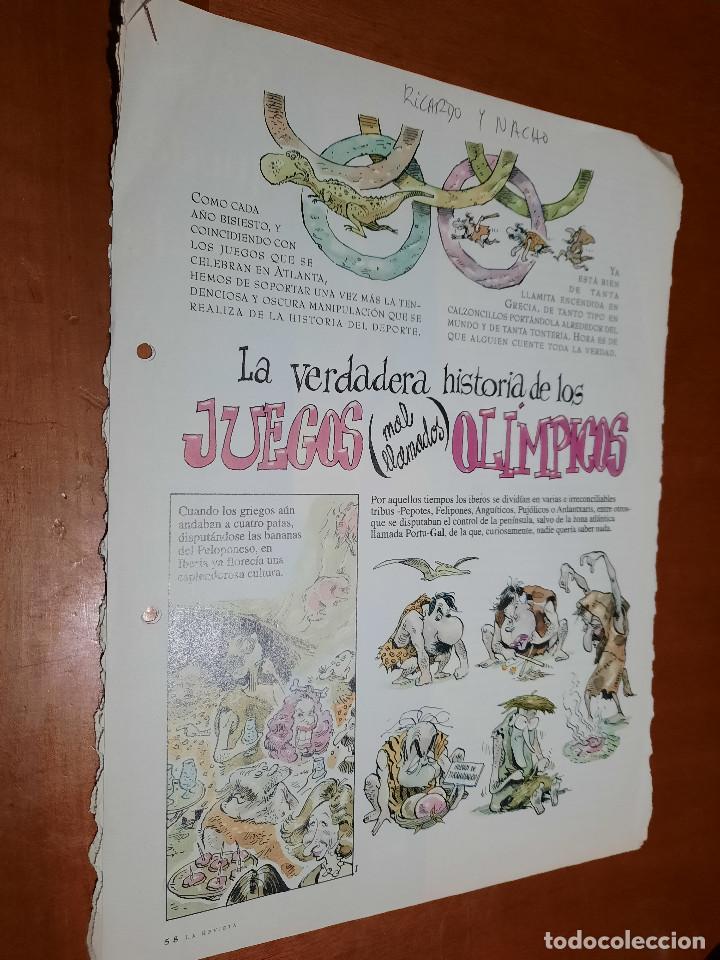 RICARDO Y NACHO
COMO CADA
AÑO BISIESTO, Y
COINCIDIENDO CON
LOS JUEGOS QUE SE
CELEBRAN EN ATLANTA,
HEMOS DE SOPORTAR UNA VEZ MÁS LA TEN-
DENCIOSA Y OSCURA MANIPULACIÓN QUE SE
REALIZA DE LA HISTORIA DEL DEPORTE.
YA
ESTÁ BIEN
DE TANTA
LLAMITA ENCENDIDA EN
GRECIA, DE TANTO TIPO EN
CALZONCILLOS PORTÁNDOLA ALREDEDOR DEL
MUNDO Y DE TANTA TONTERÍA. HORA ES DE
QUE ALGUIEN CUENTE TODA LA VERDAD.
La verdadera historia de los
JUEGOS (mal llamados) OLÍMPICOS
Cuando los griegos aún
andaban a cuatro patas,
disputándose las bananas
del Peloponeso, en
Iberia ya florecía una
esplendorosa cultura.
Por aquellos tiempos los iberos se dividían en varias e irreconciliables
tribus -Pepotes, Felipones, Anguíticos, Pujólicos o Ardantxaris, entre otros-
que se disputaban el control de la península, salvo de la zona atlántica
llamada Portu-Gal, de la que, curiosamente, nadie quería saber nada.
HUEVO DE
58 LA REVISTA
todocoleccion
todocoleccion.net